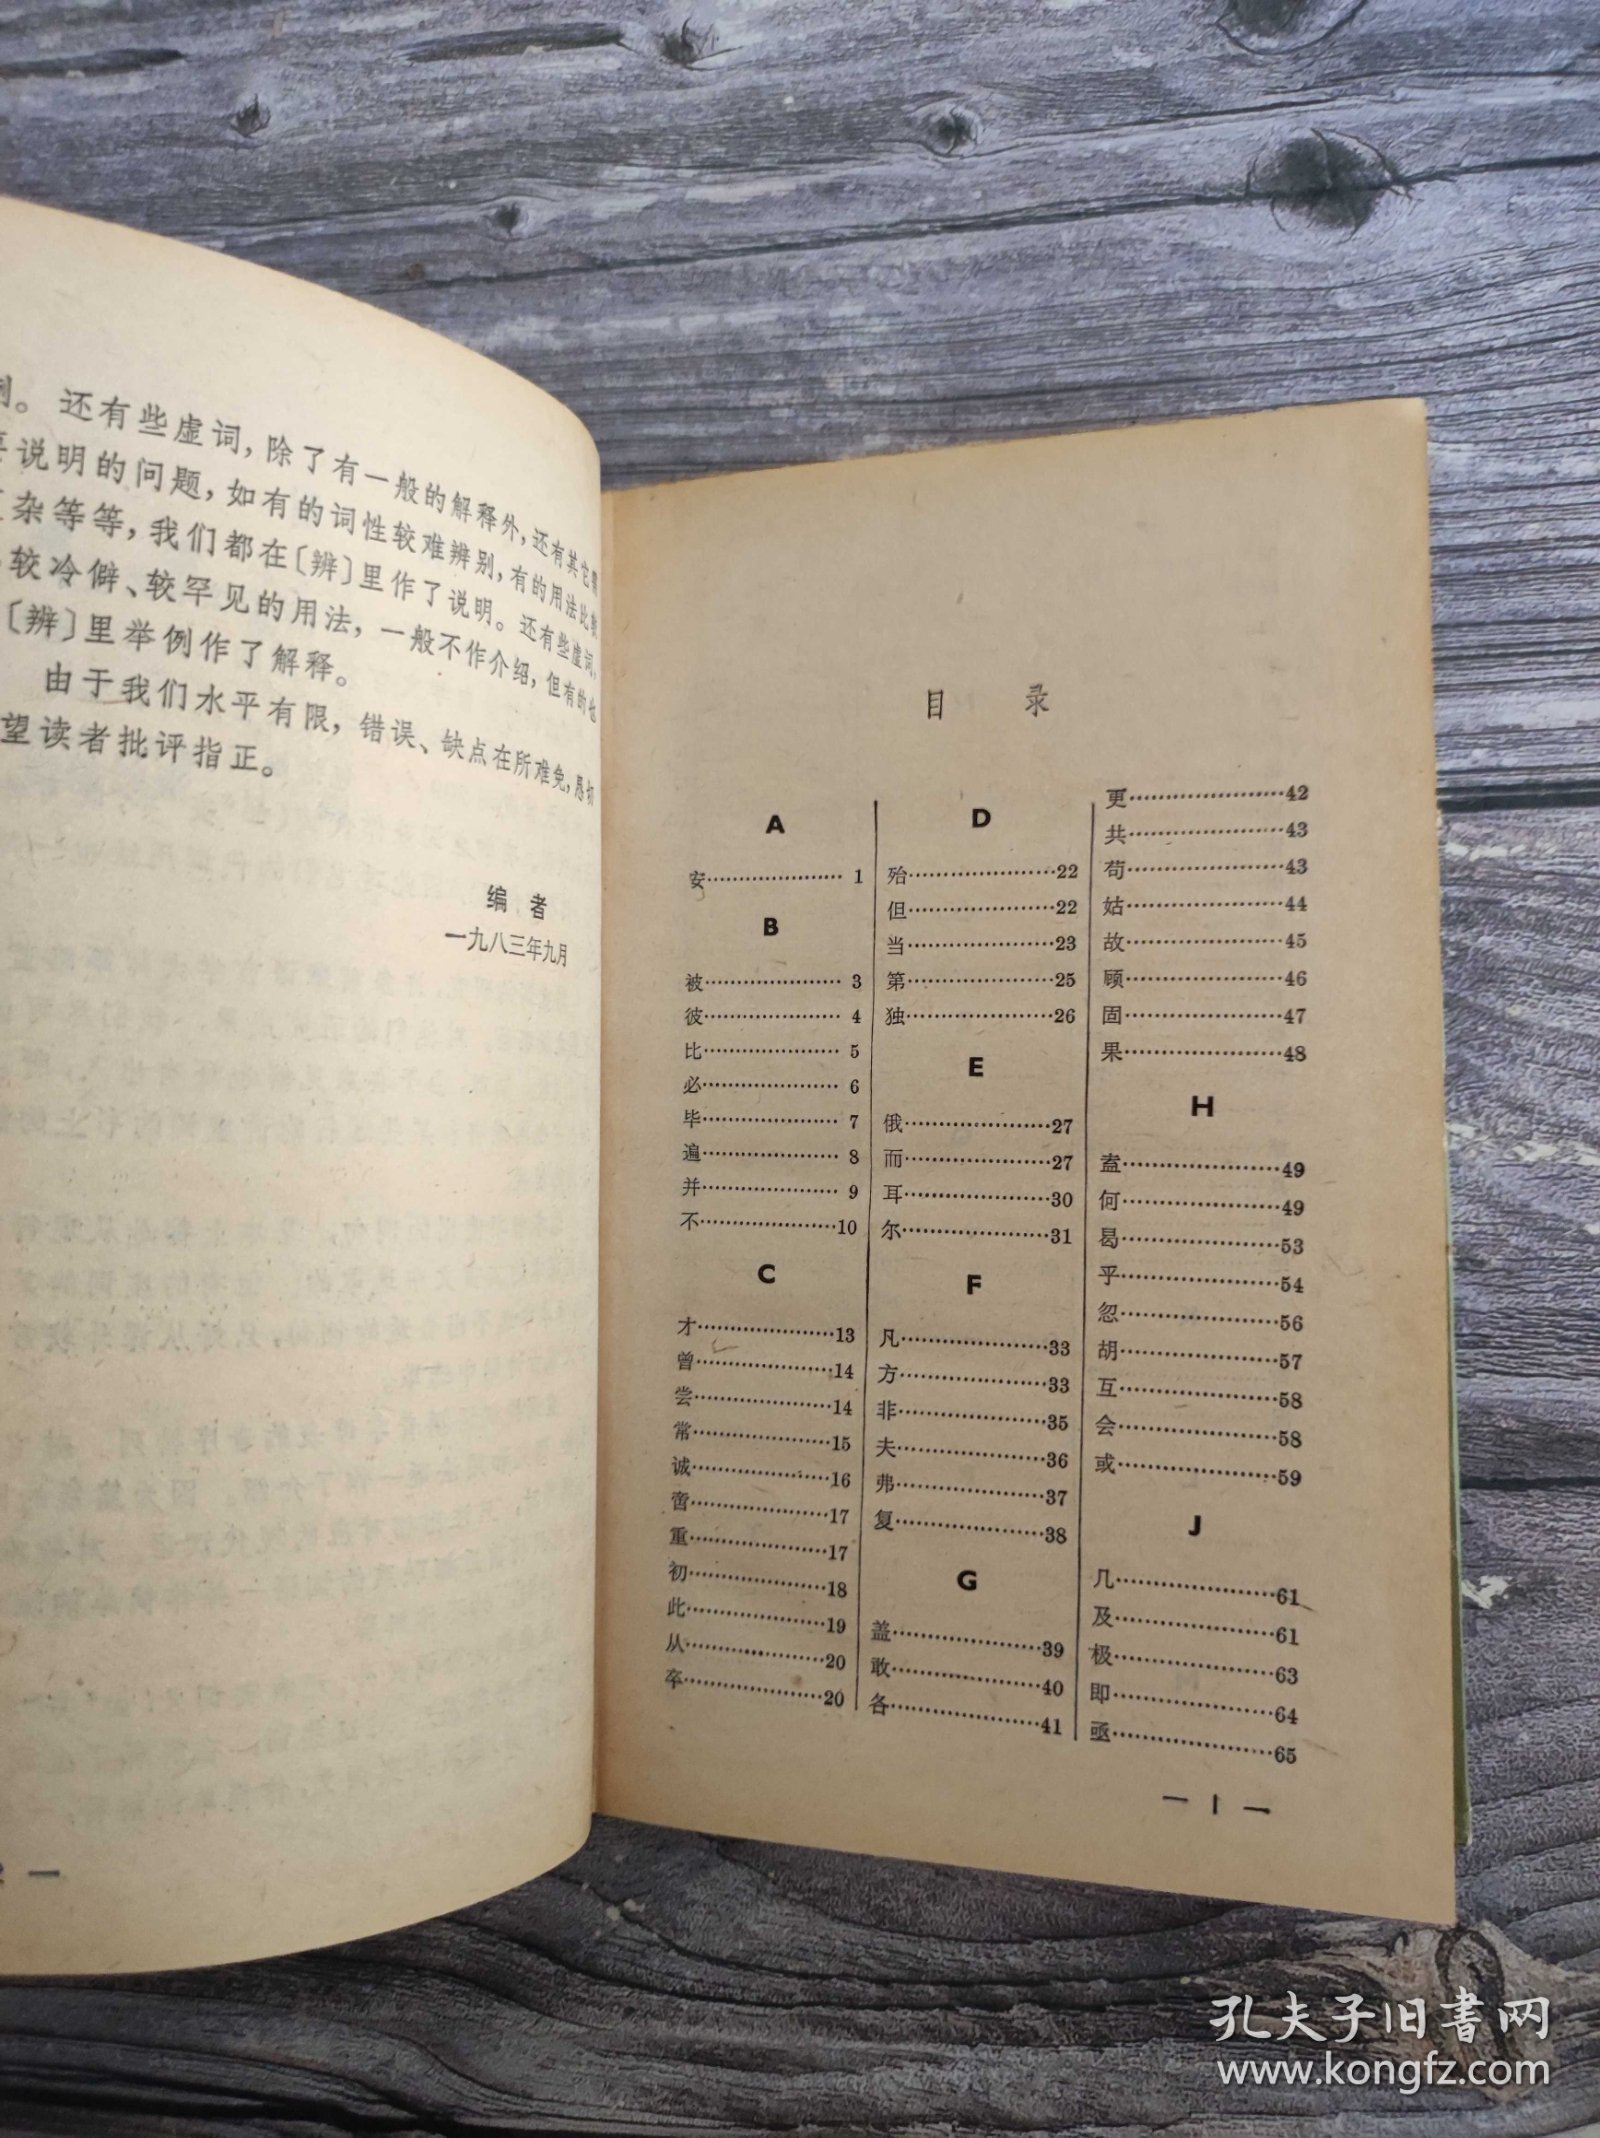 例。还有些虚词，除了有一般的解释外，还有其它需
要说明的问题，如有的词性较难辨别，有的用法比较
杂等等，我们都在〔辨〕里作了说明。还有些虚词，
较冷僻、较罕见的用法，一般不作介绍，但有的也
〔辨〕里举例作了解释。
由于我们水平有限，错误、缺点在所难免，恳切
望读者批评指正。
编者
一九八三年九月
目录
A
安……………………1
B
被……………………3
彼……………………4
比……………………5
必……………………6
毕……………………7
遍……………………8
并……………………9
不……………………10
C
才……………………13
曾……………………14
尝……………………14
常……………………15
诚……………………16
啻……………………17
重……………………17
初……………………18
此……………………19
从……………………20
卒……………………20
D
殆……………………22
但……………………22
当……………………23
第……………………25
独……………………26
E
俄……………………27
而……………………27
耳……………………30
尔……………………31
F
凡……………………33
方……………………33
非……………………35
夫……………………36
弗……………………37
复……………………38
G
盖……………………39
敢……………………40
各……………………41
更……………………42
共……………………43
苟……………………43
姑……………………44
故……………………45
顾……………………46
固……………………47
果……………………48
H
盍……………………49
何……………………49
曷……………………53
乎……………………54
忽……………………56
胡……………………57
互……………………58
会……………………58
或……………………59
J
几……………………61
及……………………61
极……………………63
即……………………64
亟……………………65
— 1 —
孔夫子旧书网
www.kongfz.com